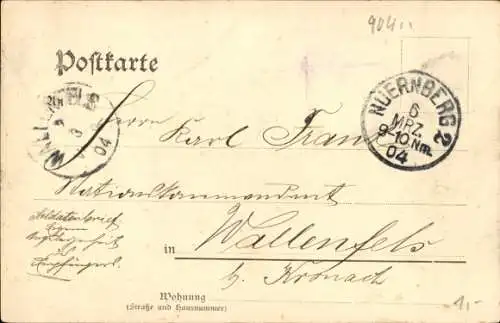 904..
Postkarte
An
WALLENFELS
3
04
NUERNBERG 2
6
MRZ.
9-10.Nm.
04
Herrn Karl Frank
Stationskommandant
in Wallenfels
b. Kronach
Soldatenbrief
Eigene
Angelegenheit
d.
Empfängers.
Wohnung
(Straße und Hausnummer)
1,-